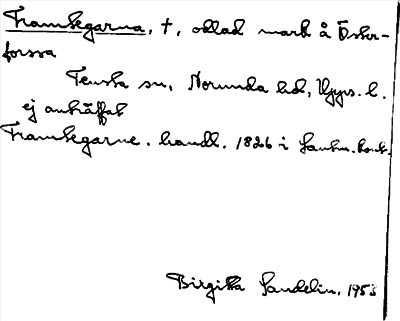 Framhegarna, †, odlad mark å Öster-
forssa
Tensta sn, Norunda hd, Upps. l.
ej anträffat
Framhegarne. handl. 1826 i Lantm.kont.
Birgitta Sandelin, 1953